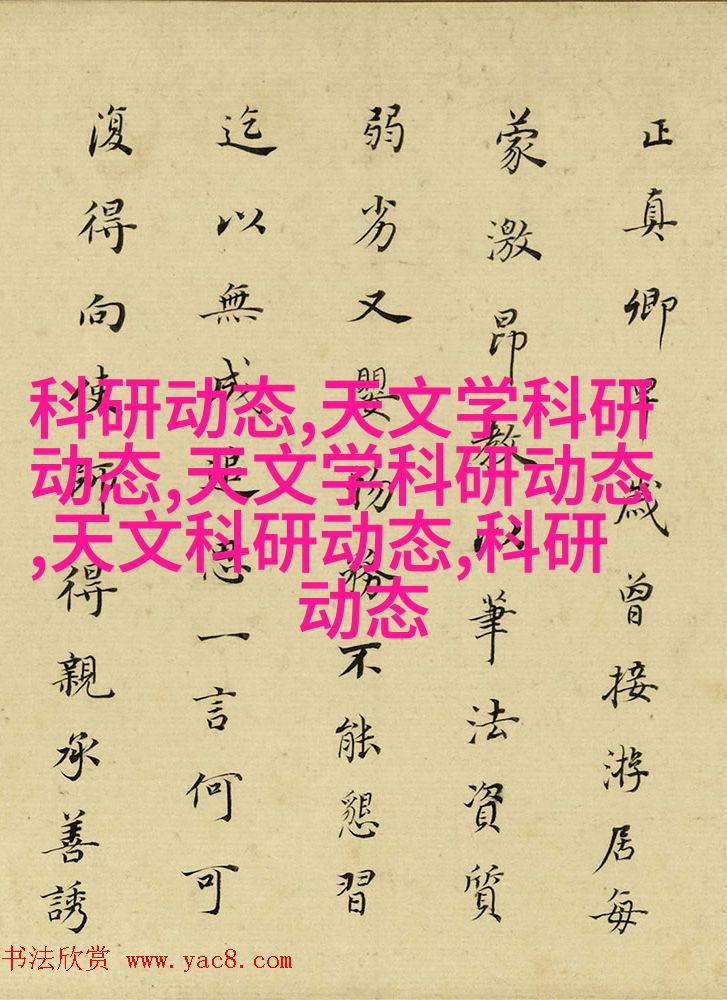 正真卿早歲曾接游居每
蒙激昂教以筆法資質
弱劣又嬰物務不能懇習
迄以無成追思一言何可
復得向使師得親承善誘
科研动态,天文学科研
动态,天文学科研动态
,天文科研动态,科研
动态
书法欣赏 www.yac8.com